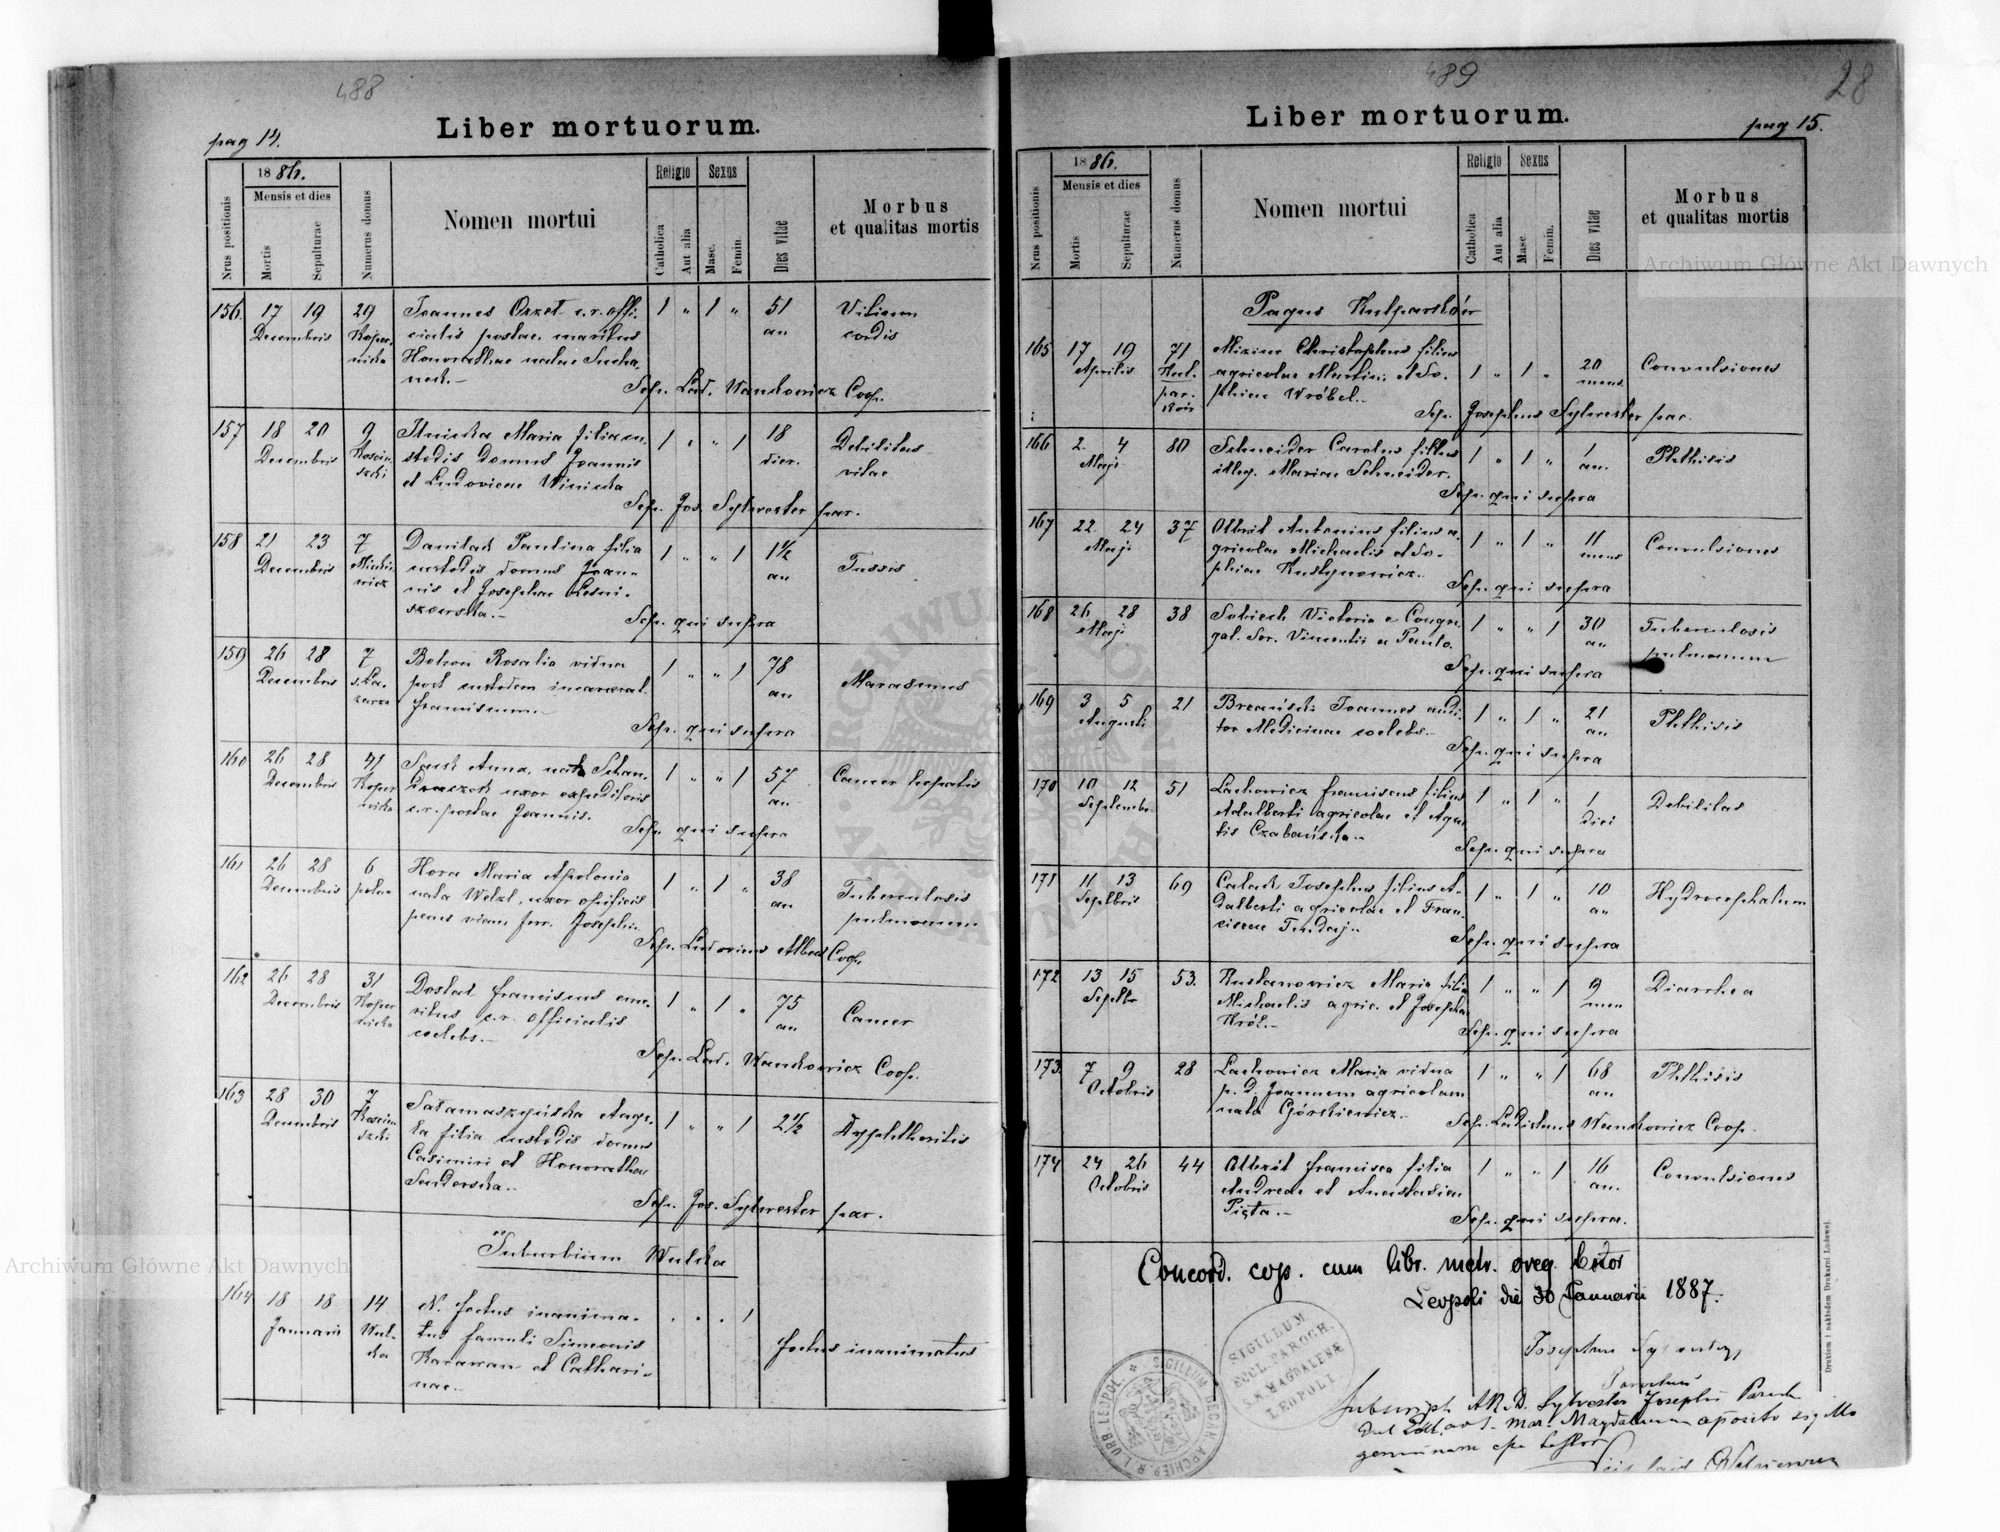 488
Liber mortuorum.
pag 14.
1886.
Religio Sexus
Mensis et dies
Nrus positionis
Mortis
Sepulturae
Numerus domus
Nomen mortui
Catholica
Aut alia
Masc.
Femin.
Dies vitae
Morbus
et qualitas mortis
156. 17 19 29 Joannes Orzeł c. r. offi- 1 " 1 " 51 Vitium
Decembris Koper- cialis postae, maritus an cordis
nicka Honorathae natae Sucha-
nek.-
Sep. Lad. Wankowicz Coop.
157 18 20 9 Maria filia cu- 1 " " 1 18 Debilitas
Decembris Kościu- stodis domus Joannis dier. vitae
szki et Ludovicae Winicka
Sep. Jos. Sylwester par.
158 21 23 7 Danilak Paulina filia 1 " " 1 1½ Tussis
Decembris Mickie- custodis domus Joan- an
wicz nis et Josephae
Sep. qui supra
159 26 28 7 Rosalia vidua 1 " " 1 78 Marasmus
Decembris s. Ła- post custodem incarcerat. an
zarza Franciscum.-
Sep. qui supra
160 26 28 41 Anna, nata 1 " " 1 57 Cancer hepatis
Decembris Koper uxor expeditoris an
nicka c. r. postae Joannis.
Sep. qui supra
161 26 28 6 Hora Maria Apolonia 1 " 1 " 38 Tuberculosis
Decembris nata Welzl, uxor opificis an pulmonum
penes viam ferr. Josephi.
Sep. Ludovicus Coop.
162 26 28 31 Dostal Franciscus eme- 1 " 1 " 75 Cancer
Decembris Koper ritus c. r. officialis an
nicka coelebs.-
Sep. Lad. Wankowicz Coop.
163 28 30 7 Sałamaszyńska Ange- 1 " " 1 2½ Dyphtheritis
Decembris Kościu la filia custodis domus
szki Casimiri et Honorathae
Sep. Jos. Sylwester par.
Suburbium Wulka
164 18 18 14 N. foetus inanima- . . . 1 foetus inanimatus
Januarii Wul- tus famuli Simeonis
ka Karawan et Cathari-
nae.-
489
28
Liber mortuorum.
pag 15.
1886.
Religio Sexus
Mensis et dies
Nrus positionis
Mortis
Sepulturae
Numerus domus
Nomen mortui
Catholica
Aut alia
Masc
Femin.
Dies vitae
Morbus
et qualitas mortis
Pagus Kulparków
165 17 19 71 Christophus filius 1 " 1 " 20 Convulsiones
Aprilis Kul- agricolae Martini et So- mens.
par- phiae Wróbel.-
ków
Sep. Josephus Sylwester par.
166 2. 4 80 Schneider Carolus filius 1 " 1 " 1 Phthisis
Maji illeg. Mariae Schneider. an.
Sep. qui supra
167 22. 24 37 Antonius filius a- 1 " 1 " 11 Convulsiones
Maji gricolae Michaelis et So- mens
phiae
Sep. qui supra
168 26 28 38 Sobiech Victoria e Congre- 1 " " 1 30 Tuberculosis
Maji gat. Sor. Vincentii a Paulo. an pulmonum
Sep. qui supra
169 3 5 21 Joannes audi- 1 " 1 " 21 Phthisis
Augusti tor Medicinae coelebs.- an
Sep. qui supra
170 10 12 51 Lachowicz Franciscus filius 1 " 1 " 1 Debilitas
Septembr. Adalberti agricolae et Agne- diei
tis Czabańska.-
Sep. qui supra
171 11 13 69 Josephus filius A- 1 " 1 " 10 Hydrocephalum
Septbris dalberti agricolae et Fran- an
ciscae
Sep. qui supra
172 13 15 53. Maria filia 1 " " 1 9 Diarrhea
Septbr Michaelis agric. et Josepha men
Król.-
Sep. qui supra
173. 7 9 28 Lachowicz Maria vidua 1 " " 1 68 Phthisis
Octobris p. D. Joannem agricolam an
nata Górskiewicz.-
Sep. Ladislaus Wankowicz Coop.
174 24 26 44 Francisca filia 1 " " 1 16 Convulsiones
Octobris Andreae et Anastasiae an.
Pięta.-
Sep. qui supra.
Concord. cop. cum libr. metr. oreg. testor
Leopoli die 30 Januarii 1887.
Parochus
SIGILLUM
ECCL. PAROCH.
S. M. MAGDALENÆ
LEOPOLI.
Sylvester Josephi Paroch.
Mar. Magdalenam
Drukiem i nakładem Drukarni Ludowej.
Archiwum Główne Akt Dawnych
Archiwum Główne Akt Dawnych